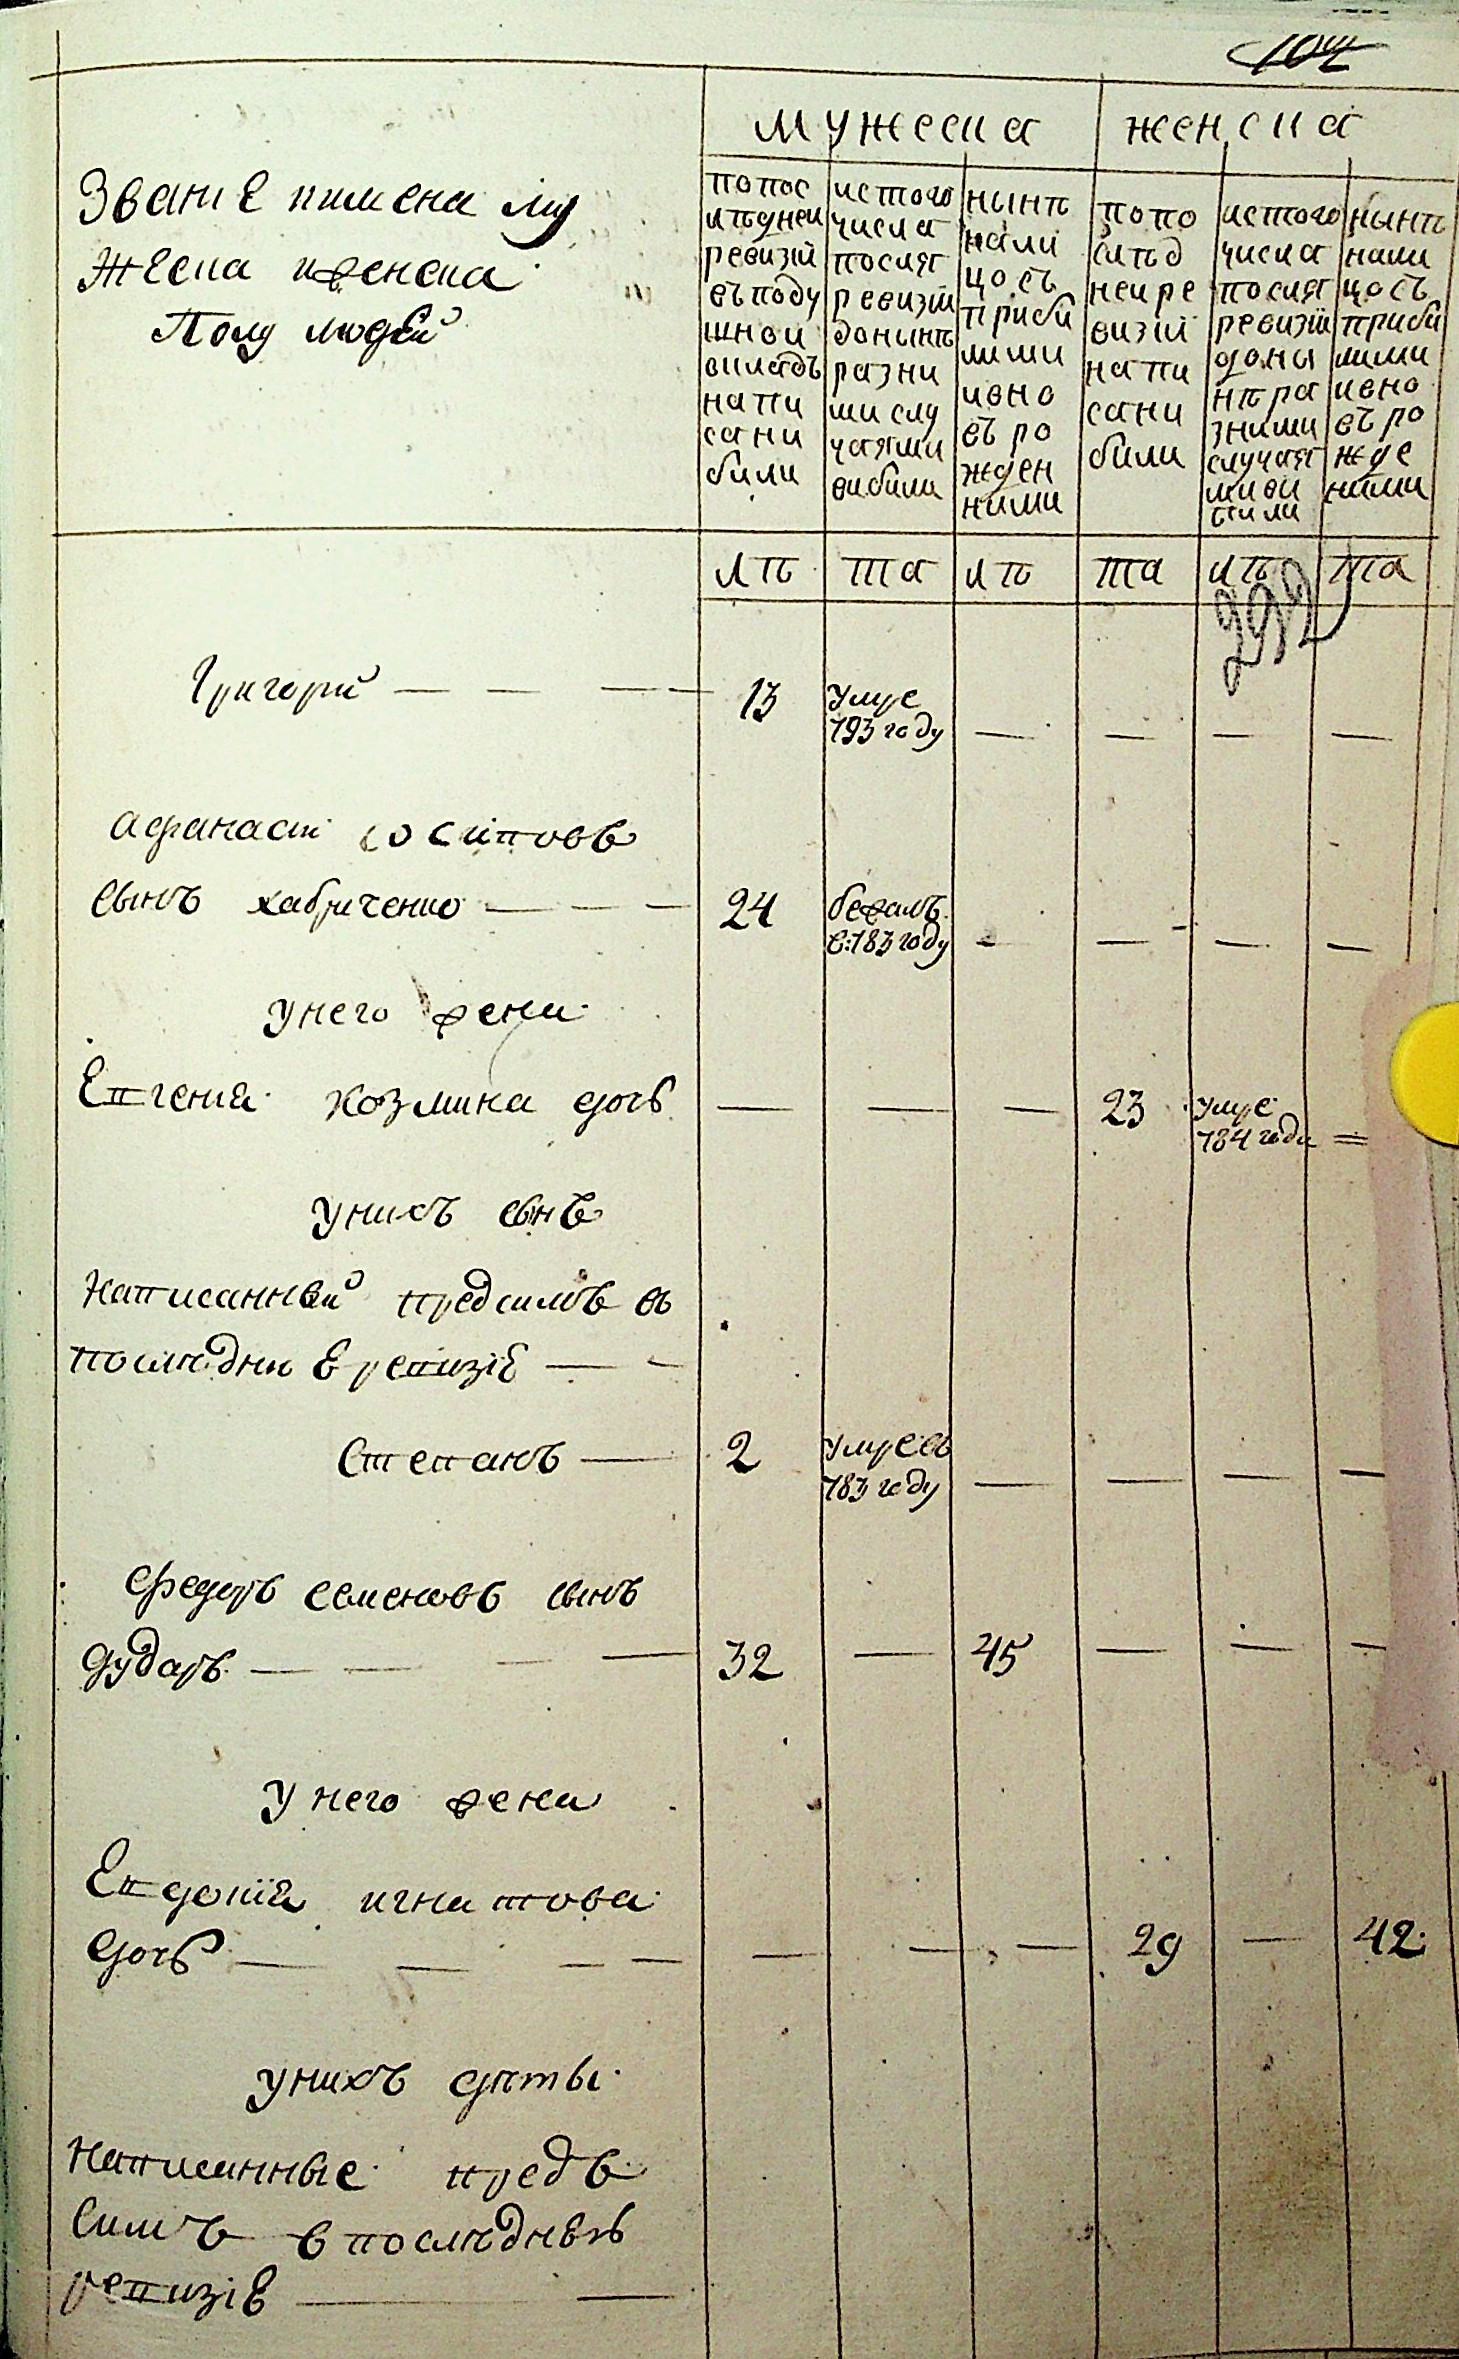 104
мужеска
женска
Званiе иимена му
жеска иженска
Полу людей
попос
лѣдней
ревизiй
въподу
шной
викладъ
напи
сани
били
истого
числа
послѣ
ревизiи
донынѣ
разни
ми слу
чаями
вибили
нынѣ
нали
цосъ
приби
лими
ивно
въ ро
жден
ними
попо
слѣд
ней ре
визiй
напи
сани
били
истого
числа
послѣ
ревизiи
доны
нѣ ра
зними
случая
ми ви
били
нынѣ
нали
цосъ
приби
лими
ивно
въ ро
жде
ними
лѣ
та
лѣ
та
лѣ
та
292
Григорiй 13 умре
793 году
афанасiй iосиповъ
сынъ хабриченко 24 бежалъ
в: 783 году
унего жена
Евгенiя козмина дочь 23 умре
784 года
унихъ сынъ
написанный предсимъ въ
последнѣе ревизiе
Степанъ 2 умре въ
783 году
федоръ семеновъ сынъ
дударь 32 45
у него жена
Евдокiя игнатова
дочь 29 42
унихъ дѣты
написанные предъ
симъ в послѣднѣй
ревизiе